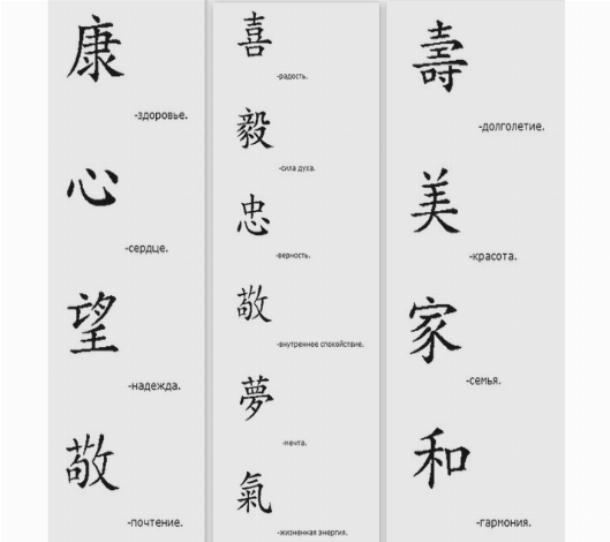 康
-здоровье.
心
-сердце.
望
-надежда.
敬
-почтение.
喜
-радость.
毅
-сила духа.
忠
-верность.
敬
-внутреннее спокойствие.
夢
-мечта.
氣
-жизненная энергия.
壽
-долголетие.
美
-красота.
家
-семья.
和
-гармония.